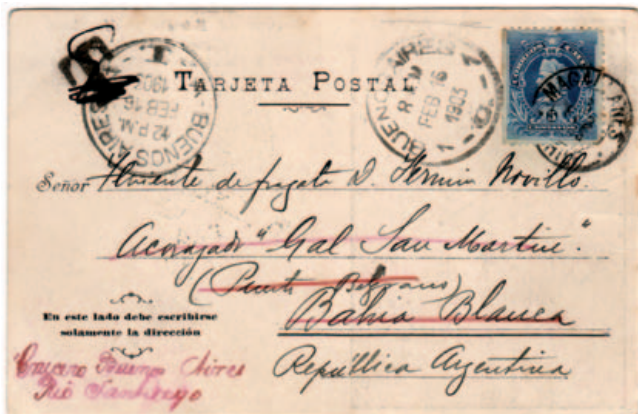 TARJETA POSTAL
BUENOS AIRES
12 P.M.
FEB 16
1903
T
BUENOS AIRES
FEB 16
1903
MAGALLANES
Señor Teniente de fragata D. Fermin Novillo
Acorazado "Gal San Martin."
(Puerto Belgrano)
Bahia Blanca
República Argentina
En este lado debe escribirse
solamente la dirección
Crucero Buenos Aires
Rio Santiago